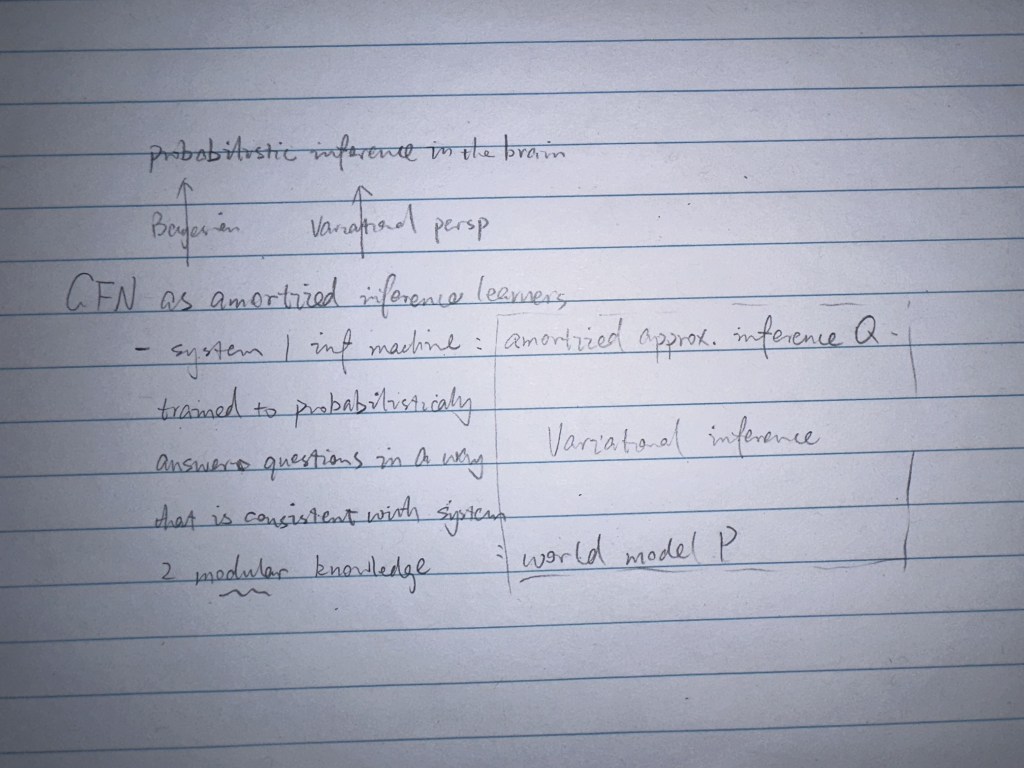 probabilistic inference in the brain
Bayesian Variational persp
GFN as amortized inference learners
- system 1 inf machine : amortized approx. inference Q
trained to probabilisticaly
Variational inference
answer questions in a way
that is consistent with system
2 modular knowledge : world model P